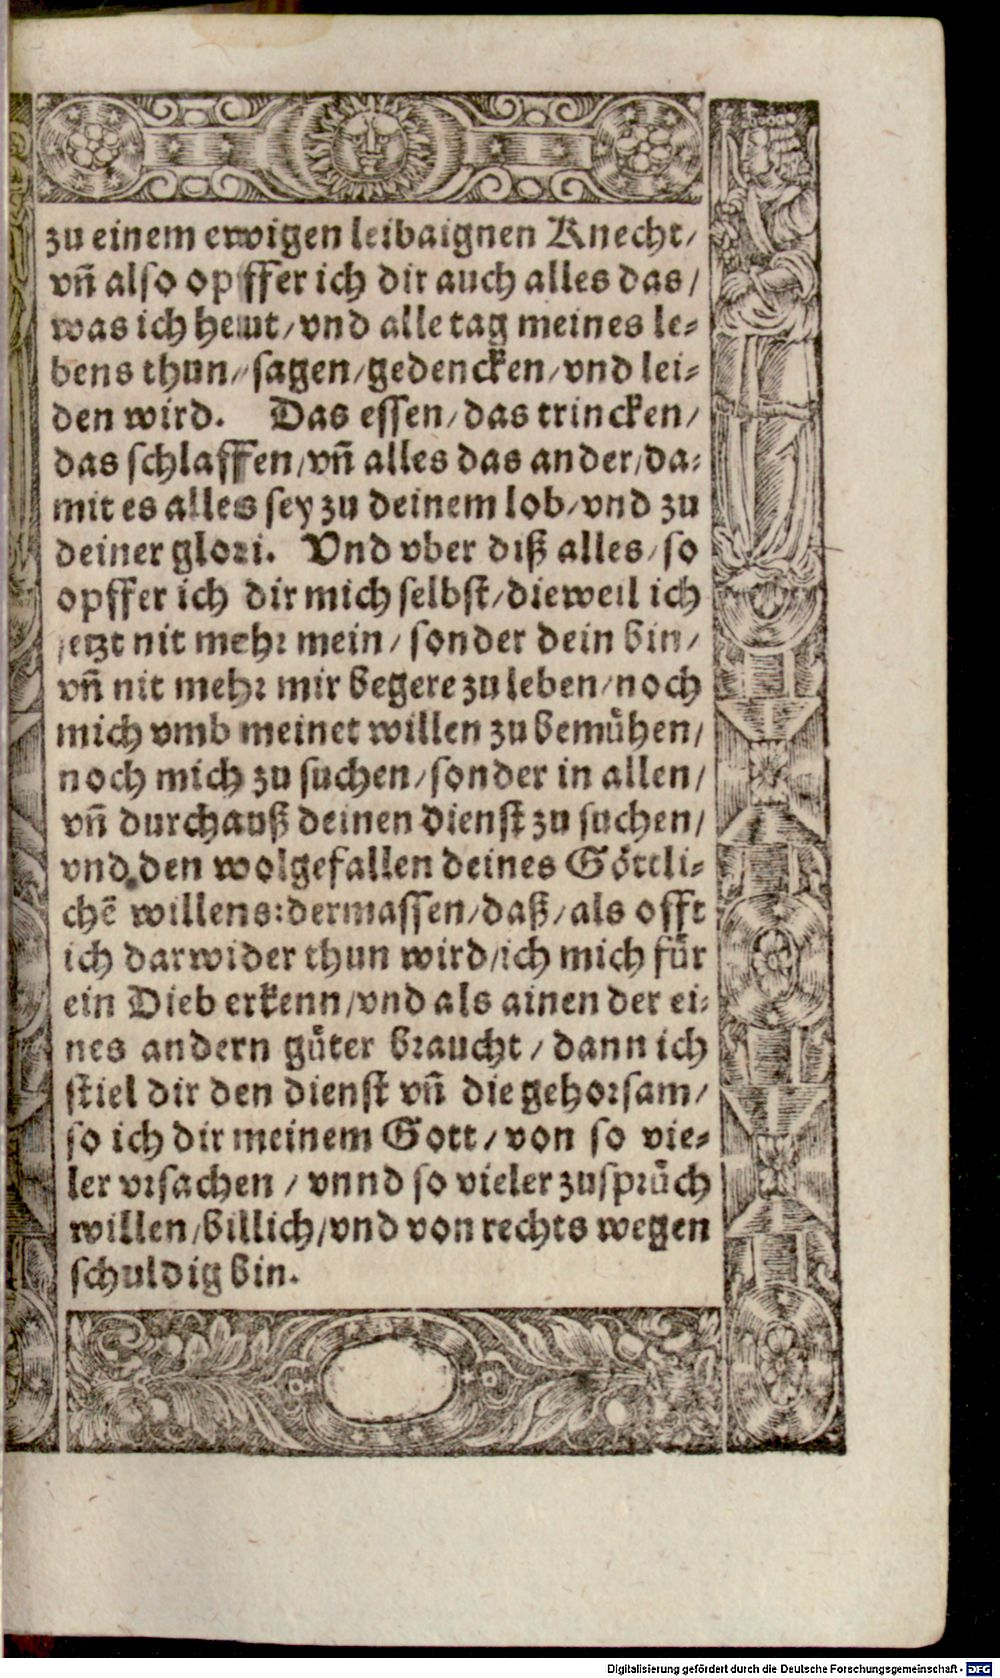 zu einem ewigen leibaignen Knecht/
vn̄ also opffer ich dir auch alles das/
was ich heut/vnd alle tag meines le⸗
bens thun/sagen/gedencken/vnd lei⸗
den wird. Das essen/das trincken/
das schlaffen/vn̄ alles das ander/da⸗
mit es alles sey zu deinem lob/vnd zu
deiner glori. Vnd vber diß alles/so
opffer ich dir mich selbst/dieweil ich
jetzt nit mehr mein/sonder dein bin/
vn̄ nit mehr mir begere zu leben/noch
mich vmb meinet willen zu bemühen/
noch mich zu suchen/sonder in allen/
vn̄ durchauß deinen dienst zu suchen/
vnd den wolgefallen deines Göttli⸗
chē willens:dermassen/daß/als offt
ich darwider thun wird/ich mich für
ein Dieb erkenn/vnd als ainen der ei⸗
nes andern güter braucht/dann ich
stiel dir den dienst vn̄ die gehorsam/
so ich dir meinem Gott/von so vie⸗
ler vrsachen/vnnd so vieler zusprüch
willen/billich/vnd von rechts wegen
schuldig bin.
Digitalisierung gefördert durch die Deutsche Forschungsgemeinschaft - DFG